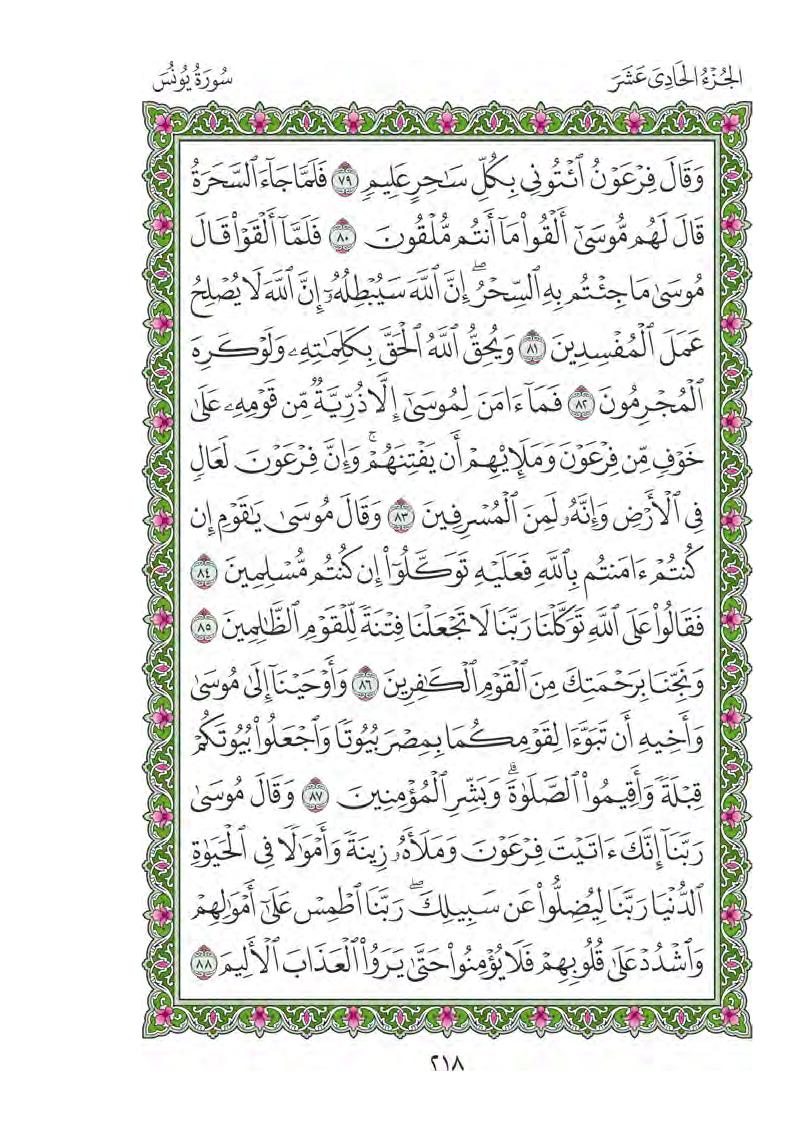 الجُزْءُ الحَادِي عَشَرَ
سُورَةُ يُونُسَ
وَقَالَ فِرْعَوْنُ ٱئْتُونِى بِكُلِّ سَـٰحِرٍ عَلِيمٍ ٧٩ فَلَمَّا جَآءَ ٱلسَّحَرَةُ
قَالَ لَهُم مُّوسَىٰٓ أَلْقُوا۟ مَآ أَنتُم مُّلْقُونَ ٨٠ فَلَمَّآ أَلْقَوْا۟ قَالَ
مُوسَىٰ مَا جِئْتُم بِهِ ٱلسِّحْرُ ۖ إِنَّ ٱللَّهَ سَيُبْطِلُهُۥٓ إِنَّ ٱللَّهَ لَا يُصْلِحُ
عَمَلَ ٱلْمُفْسِدِينَ ٨١ وَيُحِقُّ ٱللَّهُ ٱلْحَقَّ بِكَلِمَـٰتِهِۦ وَلَوْ كَرِهَ
ٱلْمُجْرِمُونَ ٨٢ فَمَآ ءَامَنَ لِمُوسَىٰٓ إِلَّا ذُرِّيَّةٌ مِّن قَوْمِهِۦ عَلَىٰ
خَوْفٍ مِّن فِرْعَوْنَ وَمَلَإِي۟هِمْ أَن يَفْتِنَهُمْ ۚ وَإِنَّ فِرْعَوْنَ لَعَالٍ
فِى ٱلْأَرْضِ وَإِنَّهُۥ لَمِنَ ٱلْمُسْرِفِينَ ٨٣ وَقَالَ مُوسَىٰ يَـٰقَوْمِ إِن
كُنتُمْ ءَامَنتُم بِٱللَّهِ فَعَلَيْهِ تَوَكَّلُوٓا۟ إِن كُنتُم مُّسْلِمِينَ ٨٤
فَقَالُوا۟ عَلَى ٱللَّهِ تَوَكَّلْنَا رَبَّنَا لَا تَجْعَلْنَا فِتْنَةً لِّلْقَوْمِ ٱلظَّـٰلِمِينَ ٨٥
وَنَجِّنَا بِرَحْمَتِكَ مِنَ ٱلْقَوْمِ ٱلْكَـٰفِرِينَ ٨٦ وَأَوْحَيْنَآ إِلَىٰ مُوسَىٰ
وَأَخِيهِ أَن تَبَوَّءَا لِقَوْمِكُمَا بِمِصْرَ بُيُوتًا وَٱجْعَلُوا۟ بُيُوتَكُمْ
قِبْلَةً وَأَقِيمُوا۟ ٱلصَّلَوٰةَ ۗ وَبَشِّرِ ٱلْمُؤْمِنِينَ ٨٧ وَقَالَ مُوسَىٰ
رَبَّنَآ إِنَّكَ ءَاتَيْتَ فِرْعَوْنَ وَمَلَأَهُۥ زِينَةً وَأَمْوَٰلًا فِى ٱلْحَيَوٰةِ
ٱلدُّنْيَا رَبَّنَا لِيُضِلُّوا۟ عَن سَبِيلِكَ ۖ رَبَّنَا ٱطْمِسْ عَلَىٰٓ أَمْوَٰلِهِمْ
وَٱشْدُدْ عَلَىٰ قُلُوبِهِمْ فَلَا يُؤْمِنُوا۟ حَتَّىٰ يَرَوُا۟ ٱلْعَذَابَ ٱلْأَلِيمَ ٨٨
٢١٨